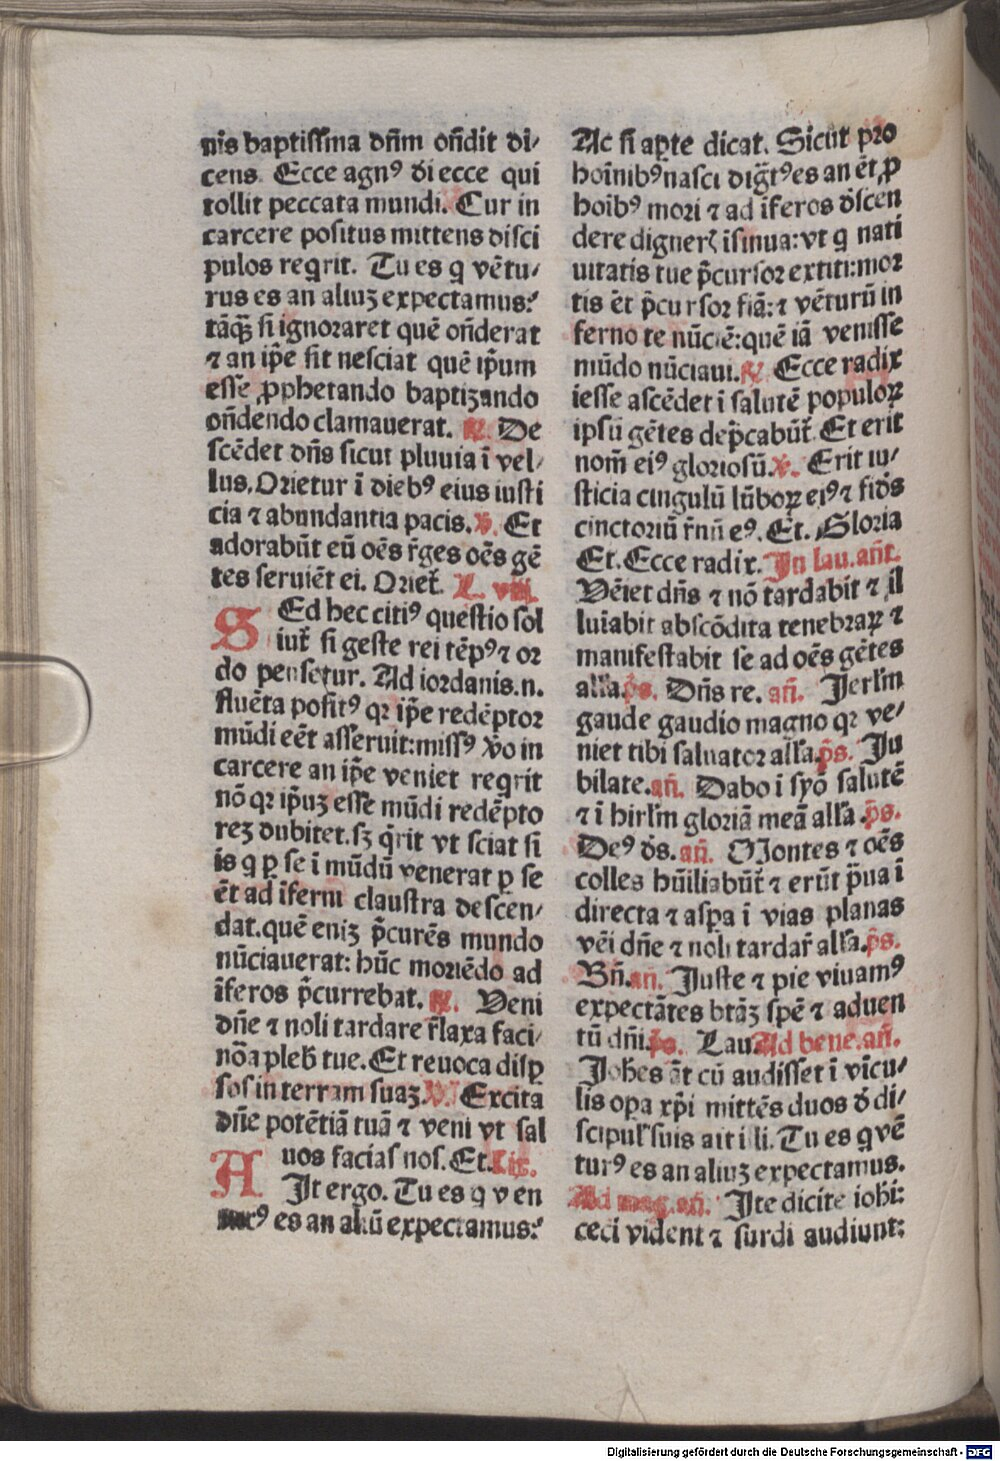 nis baptissma dñm oñdit di⸗
cens. Ecce agnꝰ di ecce qui
tollit peccata mundi. Cur in
carcere positus mittens disci
pulos reqrit. Tu es q vētu⸗
rus es an aliuꝫ expectamus:
tāqꝫ si ignoraret quē oñderat
⁊ an ip̄e sit nesciat quē ip̄um
esse ꝓphetando baptizando
oñdendo clamauerat. ℟. De
scēdet dñs sicut pluuia ī vel⸗
lus. Orietur ī diebꝰ eius iusti
cia ⁊ abundantia pacis. ℣. Et
adorabūt eū oēs r̄ges oēs gē
tes seruiēt ei. Oriet̄. L. viij.
Sed hec citiꝰ questio sol
iut̄ si geste rei tēpꝰ ⁊ or
do pensetur. Ad iordanis.n.
fluēta positꝰ qꝛ ip̄e redēptoꝛ
mūdi eēt asseruit: missꝰ v̊o in
carcere an ip̄e veniet reqrit
nō qꝛ ip̄uꝫ esse mūdi redēpto
reꝫ dubitet. sꝫ q̄rit vt sciat si
is q ꝑ se ī mūdū venerat ꝑ se
ēt ad īferni claustra descen⸗
dat. quē eniꝫ p̄currēs mundo
nūciauerat: hūc moriēdo ad
īferos p̄currebat. ℟. Veni
dñe ⁊ noli tardare r̄laxa faci⸗
nōa pleb̄ tue. Et reuoca disꝑ
sos in terram suaꝫ. ℣. Excita
dñe potētiā tuā ⁊ veni vt sal
uos facias nos. Et. L. ix.
AIt ergo. Tu es q ven
turꝰ es an aliū expectamus:
Ac si aꝑte dicat. Sicut pꝛo
hoīnibꝰ nasci dig̃tꝰ es an ēt ꝓ
hoibꝰ moꝛi ⁊ ad īferos d̄scen
dere dignerꝭ īsinua: vt q nati
uitatis tue p̄cursoꝛ extiti: moꝛ
tis ēt p̄cursoꝛ fiā: ⁊ vēturū in
ferno te nūciē: quē iā venisse
mūdo nūciaui. ℟. Ecce radix
iesse ascēdet ī salutē populoꝝ
ipsū gētes dep̄cabūt̄. Et erit
nom̄ eiꝰ glorioſū. ℣. Erit iu⸗
sticia cingulū lūboꝝ eiꝰ ⁊ fid̄s
cinctoriū r̄nū eꝰ. Et. Gloria
Et. Ecce radix. In lau. añt.
Vēiet dñs ⁊ nō tardabit ⁊ il
lui̅abit abscōdita tenebraꝝ ⁊
manifestabit se ad oēs gētes
alľa. p̄s. Dñs re. añ. Ierľm
gaude gaudio magno qꝛ ve⸗
niet tibi saluatoꝛ alľa. p̄s. Iu
bilate. añ. Dabo ī syō salutē
⁊ ī hirľm gloriā meā alľa. p̄s.
Deꝰ d̄s. añ. Montes ⁊ oēs
colles hūiliabūt̄ ⁊ erūt p̄ua ī
directa ⁊ asꝑa ī vias planas
vēi dñe ⁊ noli tardar̄ alľa. p̄s.
Bñ. añ. Iuste ⁊ pie viuamꝰ
expectātes btāꝫ spē ⁊ aduen
tū dñi. p̄s. Lau. Ad bene. añ.
Joh̄es āt cū audisset ī vīcu⸗
lis oꝑa xp̄i mittēs duos d̄ di⸗
scipuľ suis ait illi. Tu es q vē
turꝰ es an aliuꝫ expectamus.
Ad mag. añ. Ite dicite iohi:
ceci vident ⁊ surdi audiunt:
Digitalisierung gefördert durch die Deutsche Forschungsgemeinschaft - DFG